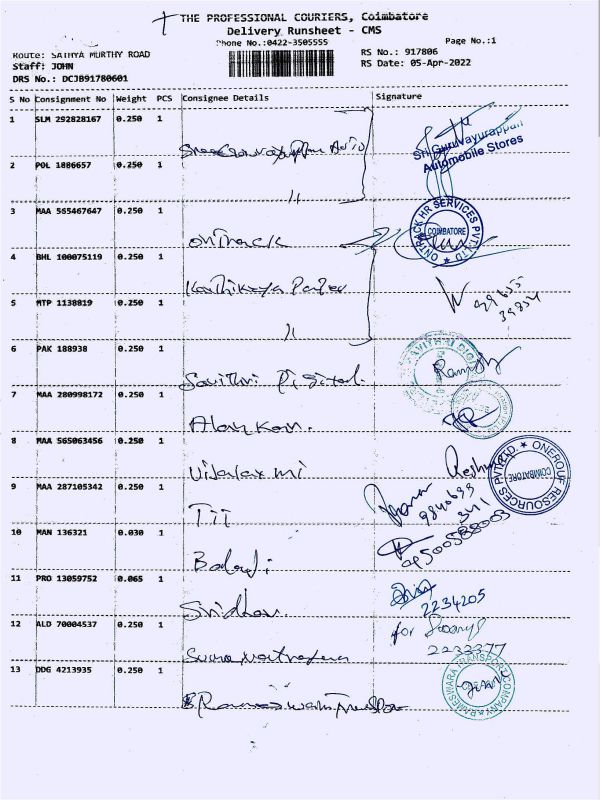 THE PROFESSIONAL COURIERS, Coimbatore
Delivery Runsheet - CMS
Phone No.:0422-3505555
Page No.:1
Route: SATHYA MURTHY ROAD
RS No.: 917806
Staff: JOHN
RS Date: 05-Apr-2022
DRS No.: DCJB91780601
S No Consignment No Weight PCS Consignee Details Signature
1 SLM 292828167 0.250 1
Sri Guruvayurappan
Automobile Stores
2 POL 1886657 0.250 1
〃
3 MAA 565467647 0.250 1
ONTRACK HR SERVICES PVT.LTD
COIMBATORE
OnTrack
4 BHL 100075119 0.250 1
Karthikeya Paper
5 MTP 1138819 0.250 1
〃
6 PAK 188938 0.250 1
Savithri Digital
7 MAA 280998172 0.250 1
Alankar.
8 MAA 565063456 0.250 1
Vijalaxmi
ONEROUF RESOURCES PVT.LTD.
COIMBATORE
9 MAA 287105342 0.250 1
TII
10 MAN 136321 0.030 1
9500588003
Balaji
11 PRO 13059752 0.065 1
2234205
Sridhar.
12 ALD 70004537 0.250 1
for
2233377
13 DDG 4213935 0.250 1
RAMESWARA TRANSPORT COMPANY